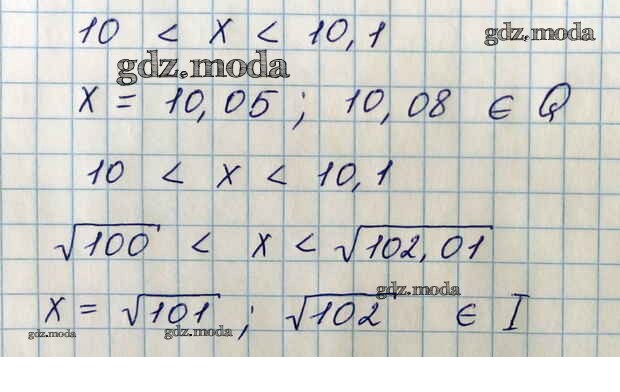 10 < x < 10,1
gdz.moda
gdz.moda
x = 10,05 ; 10,08 ∈ Q
10 < x < 10,1
√100 < x < √102,01
gdz.moda
x = √101 ; √102 ∈ I
gdz.moda
gdz.moda